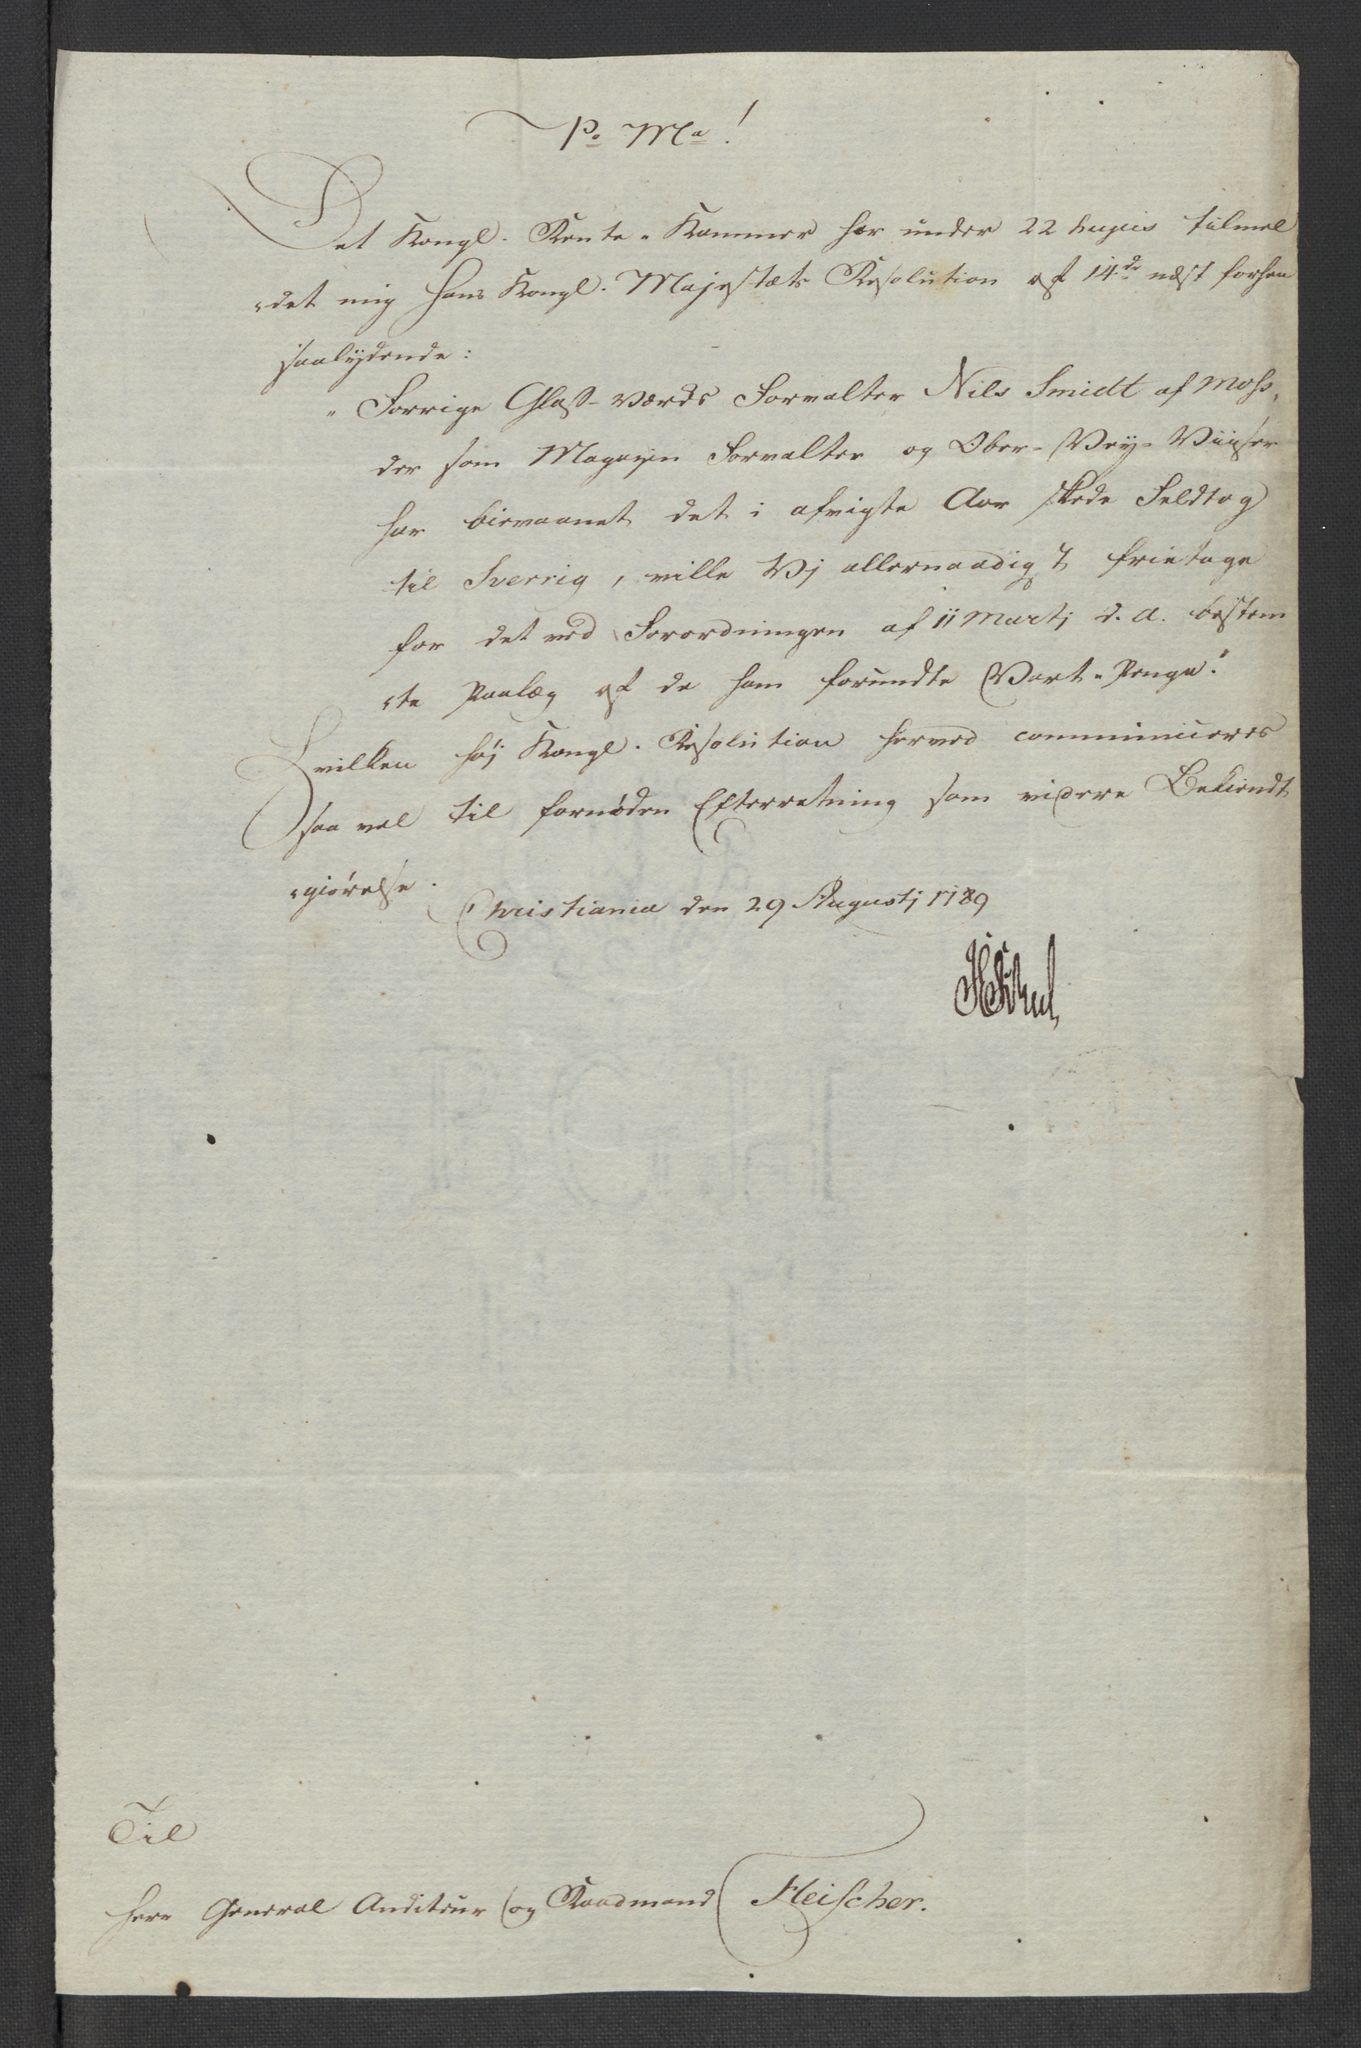 P. Ma!
Det Kongl. Rente-Kammer har under 22 hujus tilmel
-det mig Hans Kongl. Majestæts Resolution af 14de næst forhen
saalydende:
"Forrige Glass-Værks Forvalter Nils Smidt af Moss,
der som Magazin Forvalter og Ober-Vey-Viiser
har bievaanet det i afvigte Aar skede Feldtog
til Sverrig, ville Vj allernaadigst frietage
for det ved Forordningen af 11 Martj d. A. bestem
-te Paalæg af de ham forundte Vart-Penge."
Hvilken høj Kongl. Resolution herved communiceres
saa vel til fornøden Efterretning som videre Bekiendt
-giørelse.
Christiania den 29 Augustj 1789
Til
Herr General Auditeur og Raadmand Fleischer.